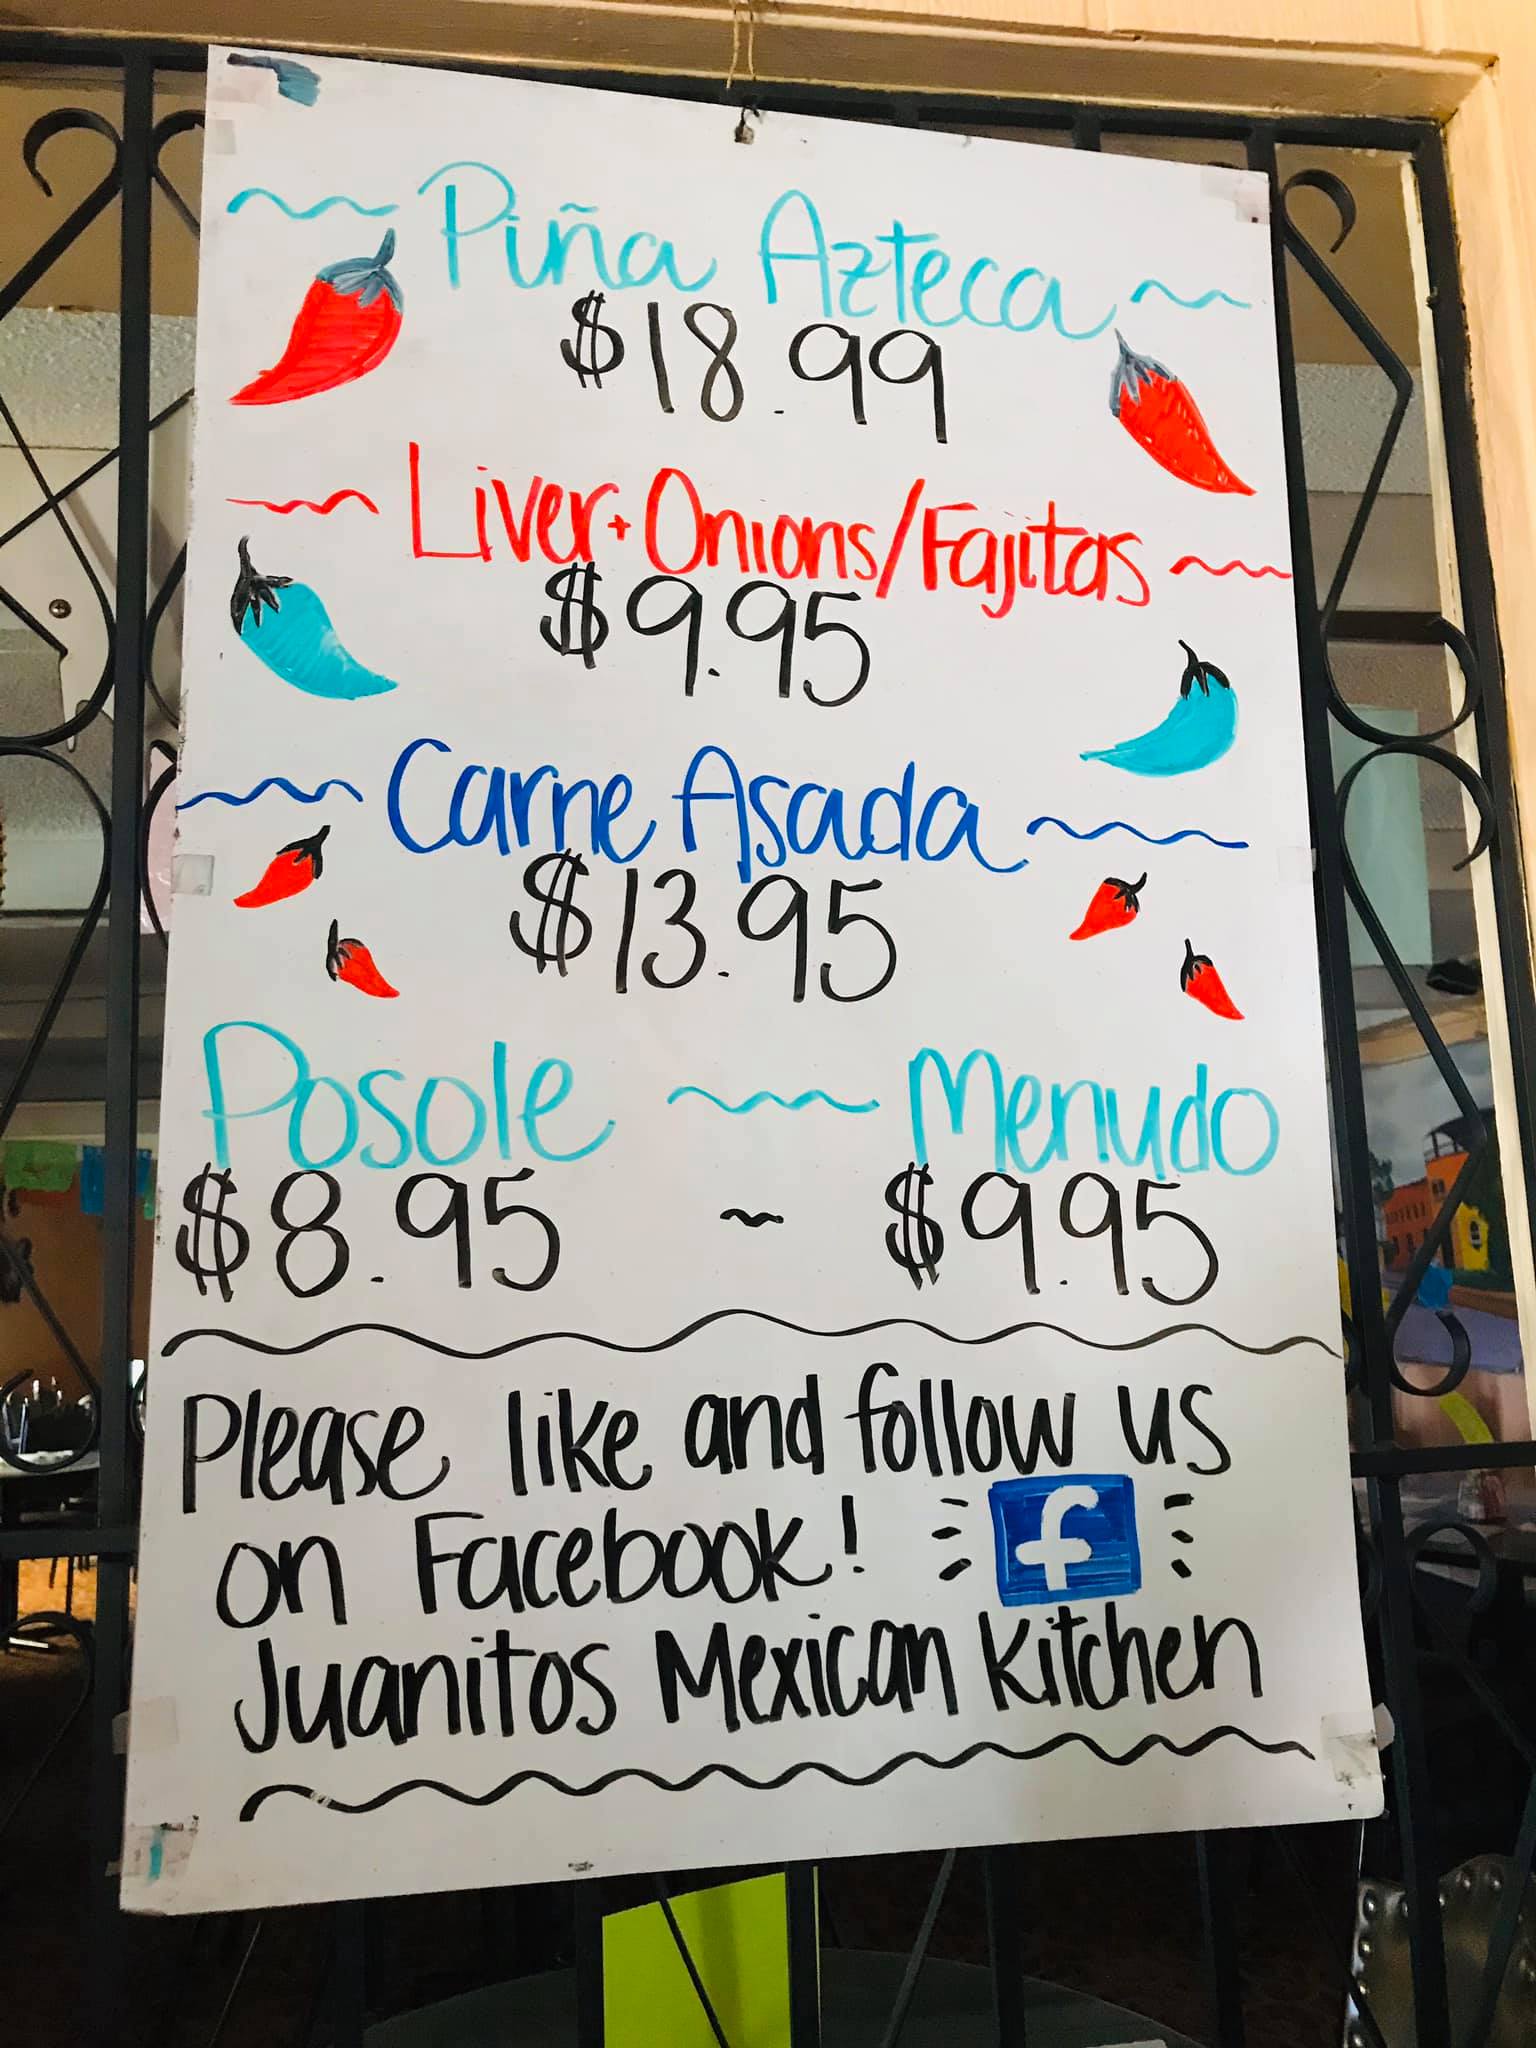 Piña Azteca
$18.99
Liver + Onions/Fajitas
$9.95
Carne Asada
$13.95
Posole ~ Menudo
$8.95 ~ $9.95
Please like and follow us
on Facebook! f
Juanitos Mexican Kitchen